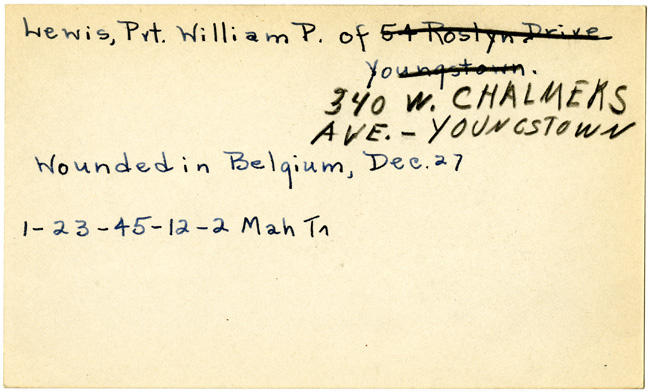 Lewis, Pvt. William P. of 54 Roslyn Drive
Youngstown.
340 W. CHALMERS
AVE. - YOUNGSTOWN
Wounded in Belgium, Dec. 27
1-23-45-12-2 Mah Tr